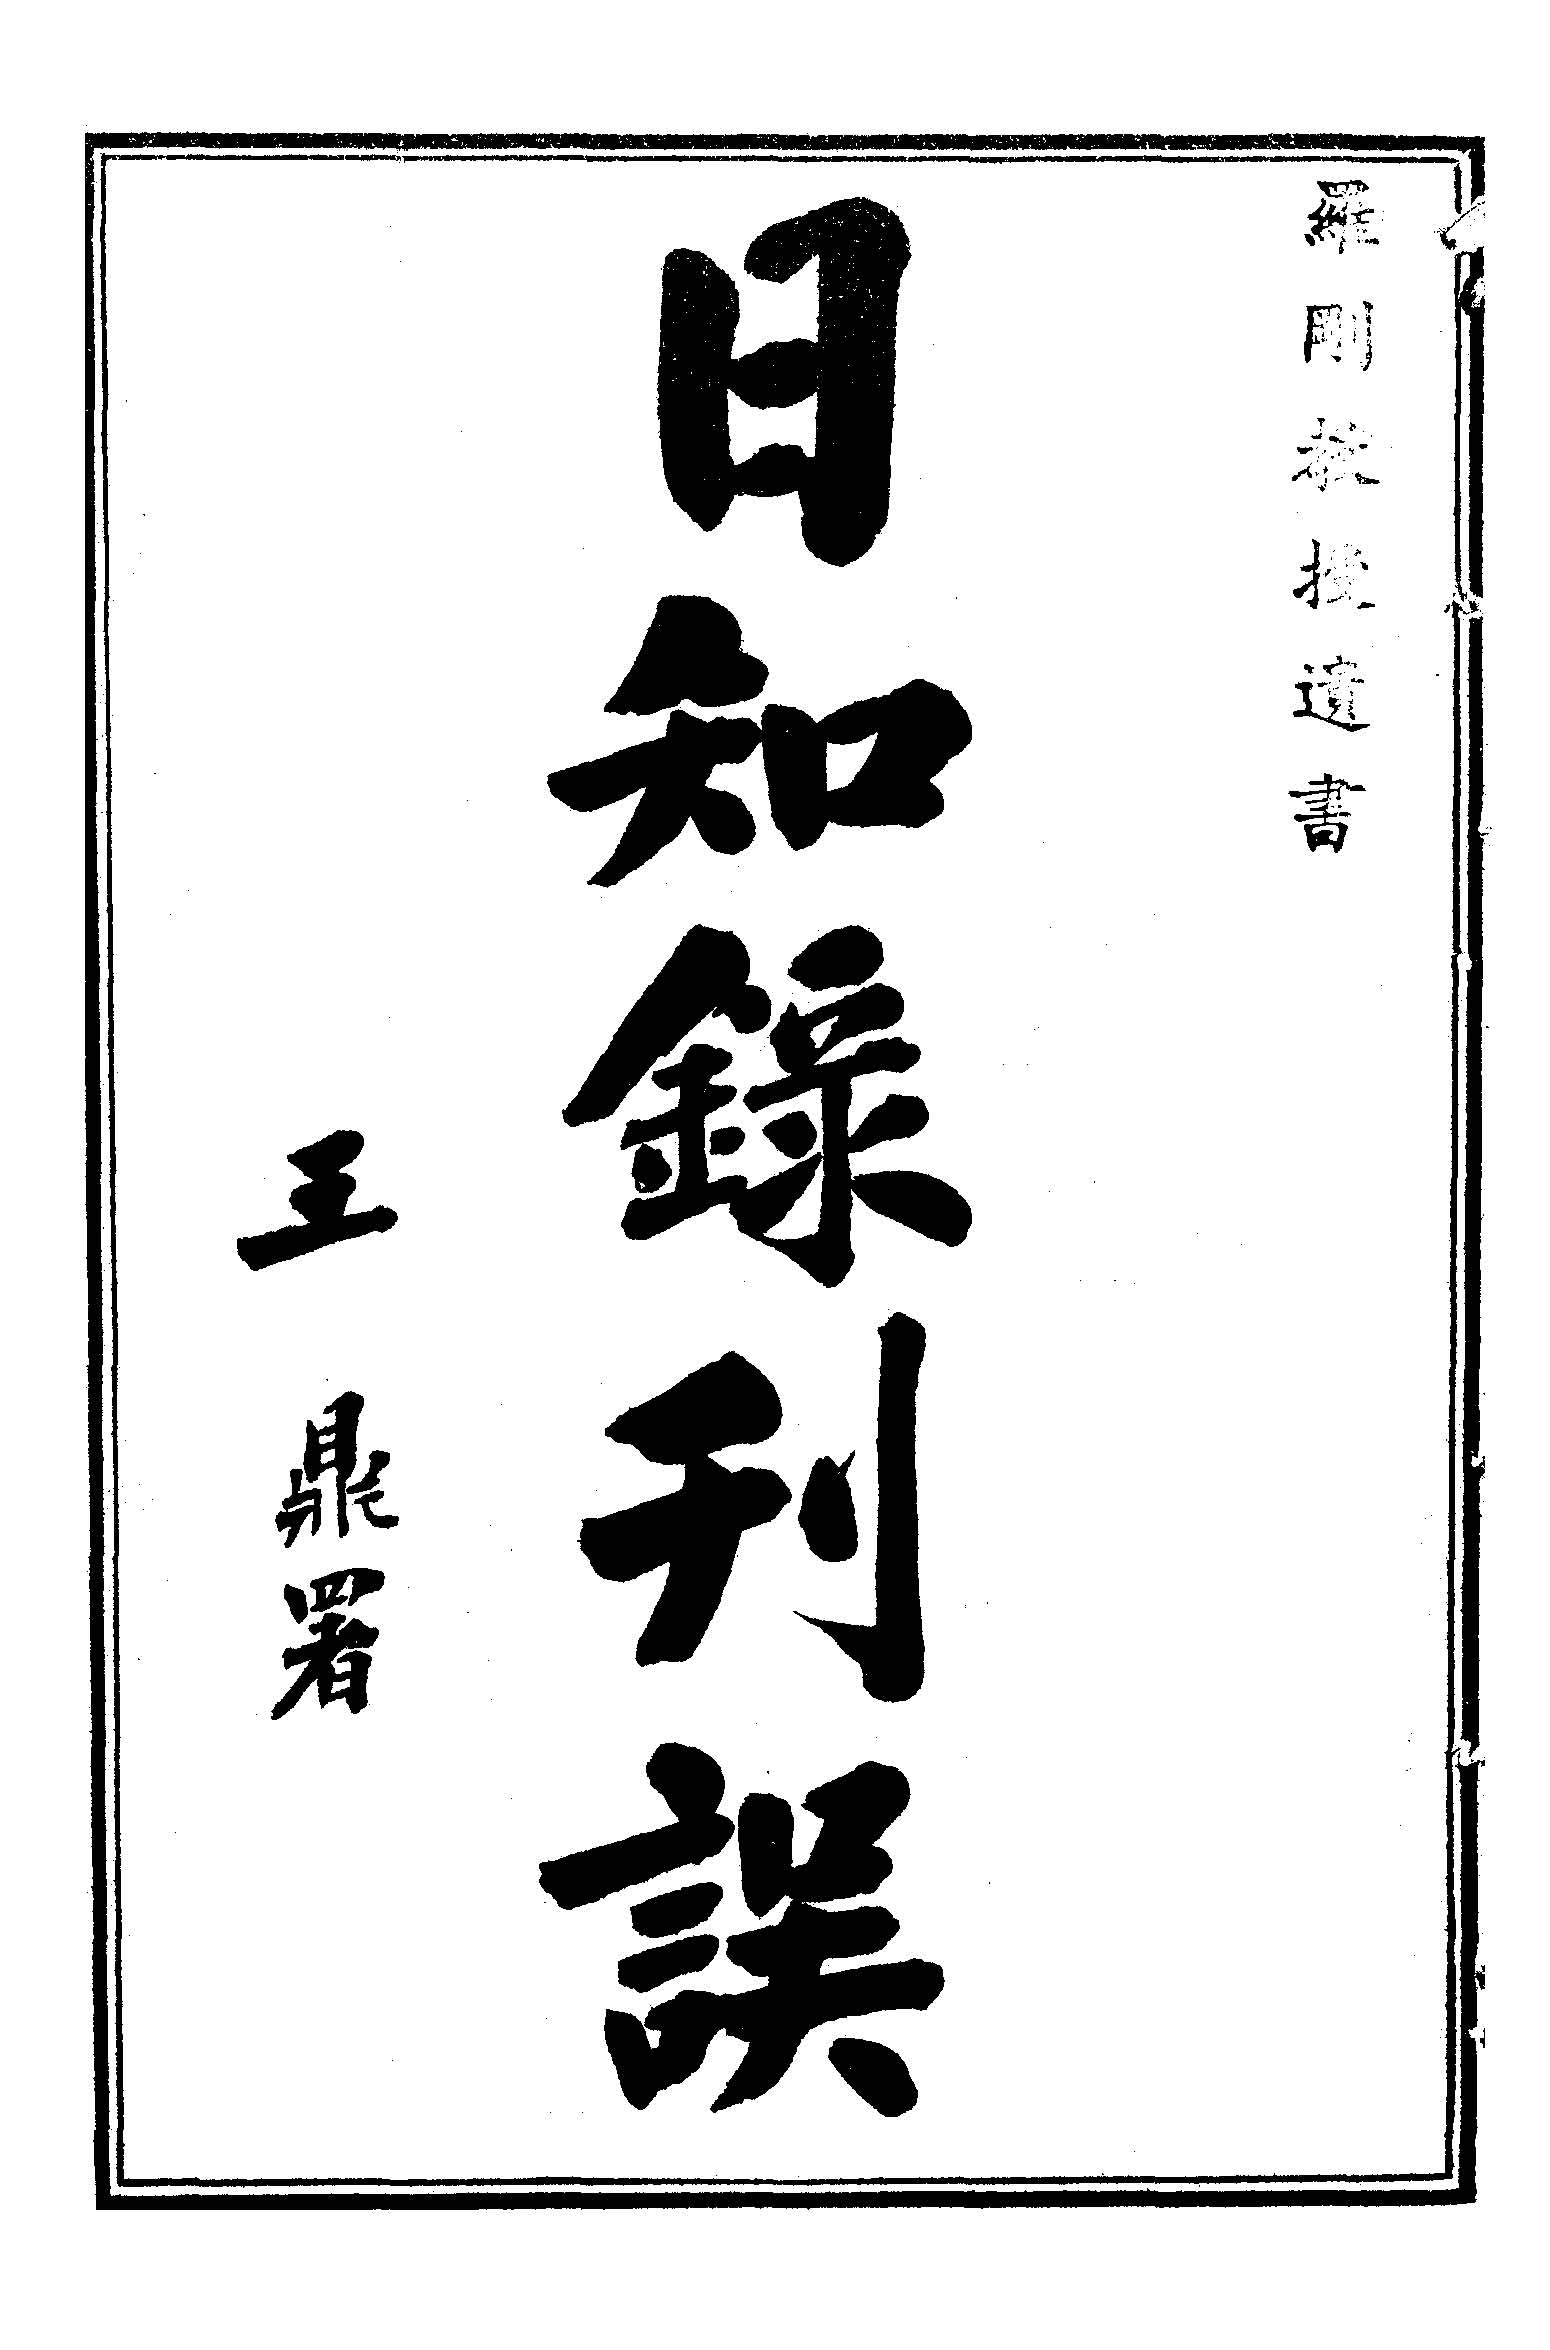 羅剛教授遺書
日知錄刋誤
王鼎署